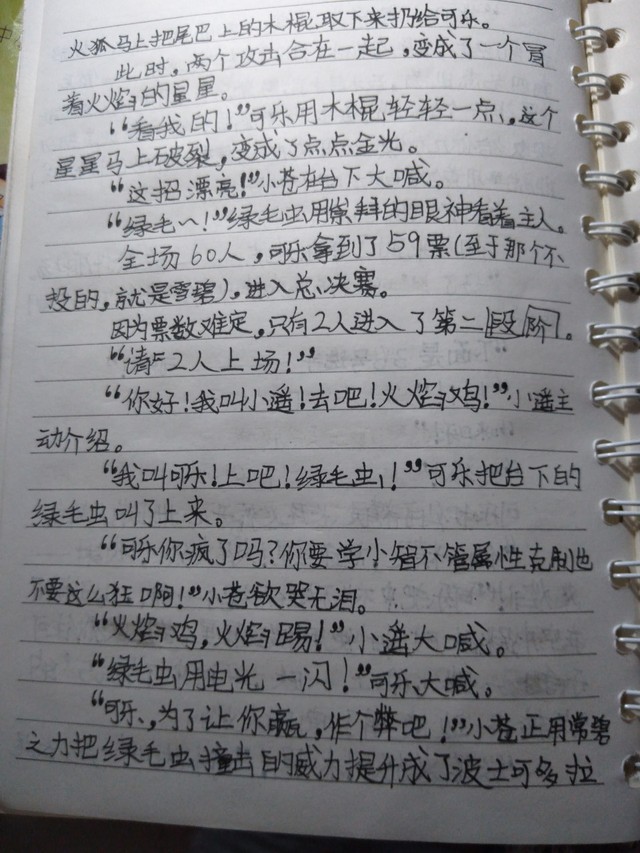 火狐马上把尾巴上的木棍取下来扔给可乐。
此时，两个攻击合在一起，变成了一个冒
着火焰的星星。
“看我的！”可乐用木棍轻轻一点，这个
星星马上破裂，变成了点点金光。
“这招漂亮！”小苍在台下大喊。
“绿毛～！”绿毛虫用崇拜的眼神看着主人。
全场60人，可乐拿到了59票（至于那个不
投的，就是雪碧），进入总决赛。
因为票数难定，只有2人进入了第二段阶。
“请2人上场！”
“你好！我叫小遥！去吧！火焰鸡！”小遥主
动介绍。
“我叫可乐！上吧！绿毛虫！”可乐把台下的
绿毛虫叫了上来。
“可乐你疯了吗？你要学小智不管属性克制也
不要这么狂啊！”小苍欲哭无泪。
“火焰鸡，火焰踢！”小遥大喊。
“绿毛虫用电光一闪！”可乐大喊。
“可乐，为了让你赢，作个弊吧！”小苍正用常碧
之力把绿毛虫撞击的威力提升成了波士可多拉